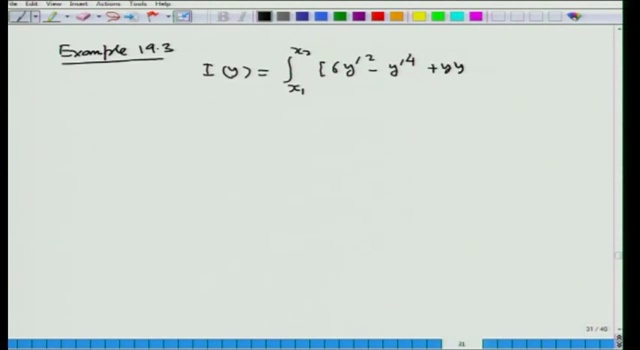 Edit View Insert Actions Tools Help
Example 19.3
I(y) = ∫_{x₁}^{x₂} [6y'² - y'⁴ + yy
31 / 40
31